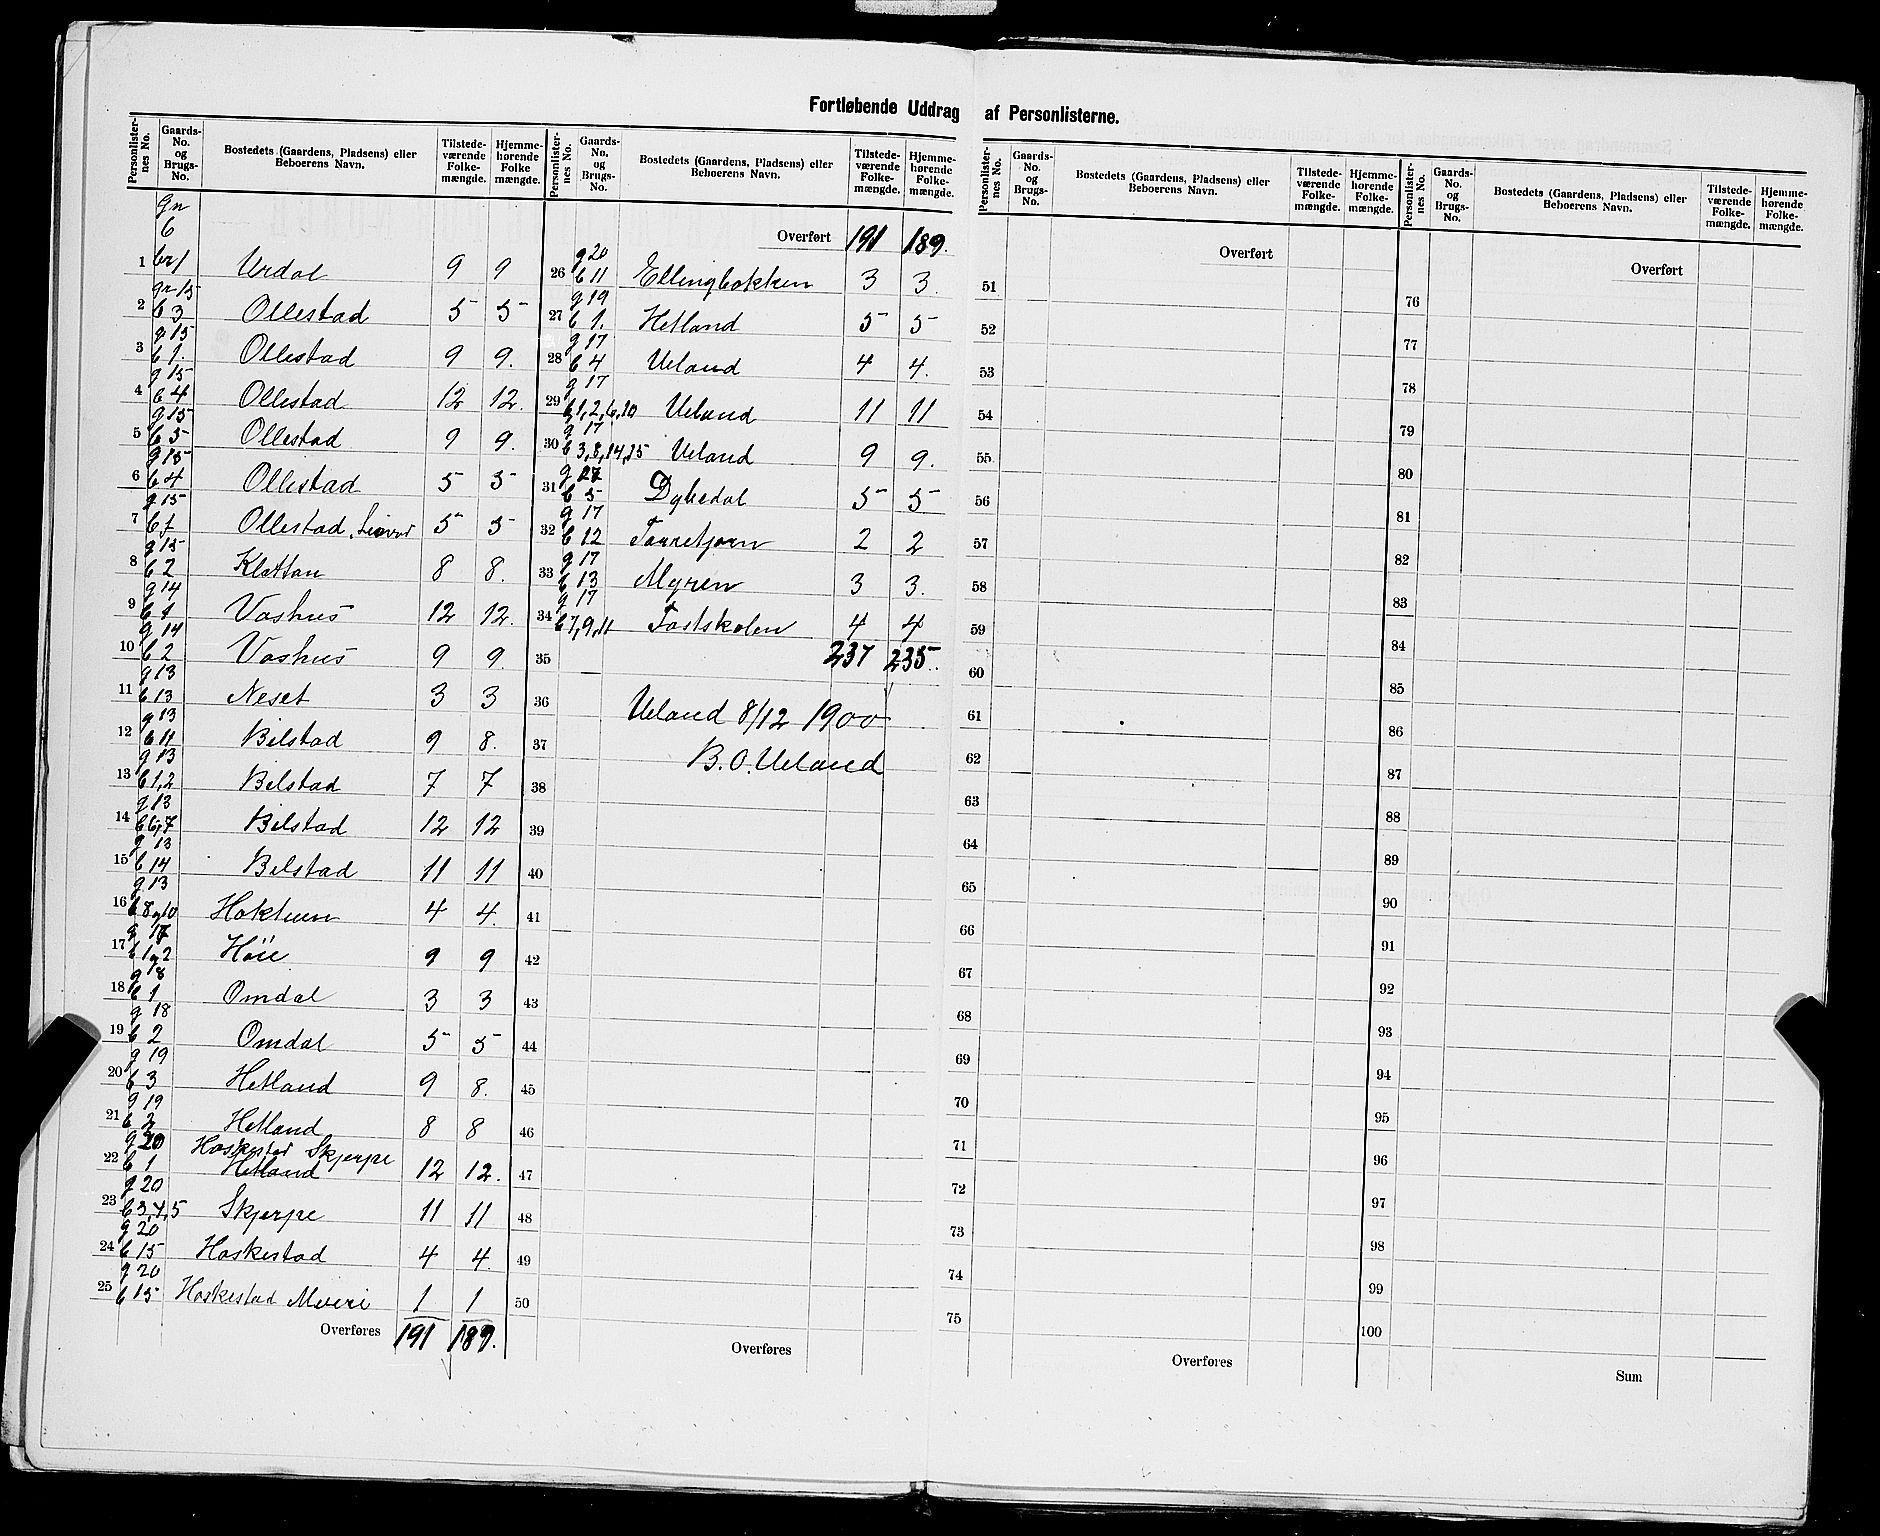 Fortløbende Uddrag af Personlisterne.
Personlisternes No. Gaards-No. og Brugs-No. Bostedets (Gaardens, Pladsens) eller Beboerens Navn. Tilstedeværende Folkemængde. Hjemmehørende Folkemængde.
gn 6
1 br 1 Urdal 9 9
gn 15
2 b 3 Ollestad 5 5
g 15
3 b 1. Ollestad 9 9.
g 15
4 b 4 Ollestad 12 12.
g 15
5 b 5 Ollestad 9 9.
g 15
6 b 4 Ollestad 5 5
g 15
7 Ollestad, 5 5
g 15
8 b 2 Klattan 8 8.
g 14
9 b 1 Vashus 12 12.
g 14
10 b 2 Vashus 9 9.
g 13
11 b 13 Neset 3 3
g 13
12 b 11 Bilstad 9 8.
g 13
13 b 1,2 Bilstad 7 7
g 13
14 b 6,7 Bilstad 12 12
g 13
15 b 14 Bilstad 11 11
g 13
16 b 8 og 10 4 4.
g 17
17 b 1 og 2 Höie 9 9
g 18
18 b 1 Omdal 3 3
g 18
19 b 2 Omdal 5 5
g 19
20 b 3 Hetland 9 8.
g 19
21 b 2 Hetland 8 8
g 20 Haskestad Skjerpe
22 b 1 Hetland 12 12.
g 20
23 Skjerpe 11 11
g 20
24 b 15 Haskestad 4 4.
g 20
25 b 15 Haskestad 1 1
Overføres 191 189.
Personlisternes No. Gaards-No. og Brugs-No. Bostedets (Gaardens, Pladsens) eller Beboerens Navn. Tilstedeværende Folkemængde. Hjemmehørende Folkemængde.
Overført 191 189.
g 20
26 b 11 Ellingbakken 3 3.
g 19
27 b 1. Hetland 5 5
g 17
28 b 4 Ueland 4 4.
g 17
29 b 1,2,6,10 Ueland 11 11
g 17
30 b 3,8,14,15 Ueland 9 9.
g 17
31 b 5 Dybedal 5 5
g 17
32 b 12 Tarretjørn 2 2
g 17
33 b 13 Myren 3 3.
g 17
34 b 7,9,11 Fastskolen 4 4
35 237 235.
36 Ueland 8/12 1900
37 B. O. Ueland
38
39
40
41
42
43
44
45
46
47
48
49
50
Overføres
Personlisternes No. Gaards-No. og Brugs-No. Bostedets (Gaardens, Pladsens) eller Beboerens Navn. Tilstedeværende Folkemængde. Hjemmehørende Folkemængde.
Overført
51
52
53
54
55
56
57
58
59
60
61
62
63
64
65
66
67
68
69
70
71
72
73
74
75
Overføres
Personlisternes No. Gaards-No. og Brugs-No. Bostedets (Gaardens, Pladsens) eller Beboerens Navn. Tilstedeværende Folkemængde. Hjemmehørende Folkemængde.
Overført
76
77
78
79
80
81
82
83
84
85
86
87
88
89
90
91
92
93
94
95
96
97
98
99
100
Sum